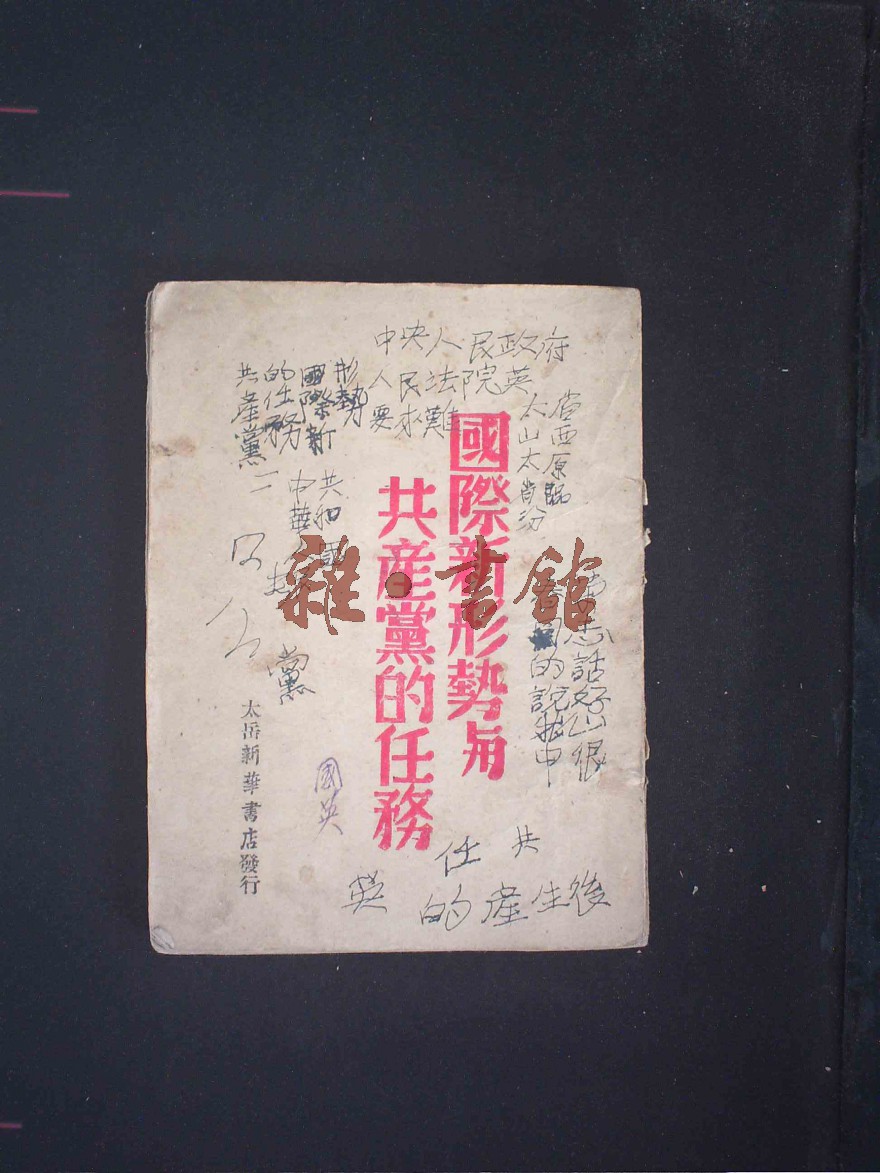 國際新形勢與
共産黨的任務
太岳新華書店發行
雜·書館
中央人民政府
人民法院英
要求難
形勢
國際新
的任務
共產黨
共和國
中華人
黨
省西原臨
太山太肯汾
話好
的說
中
國英
任共
英
的產生後